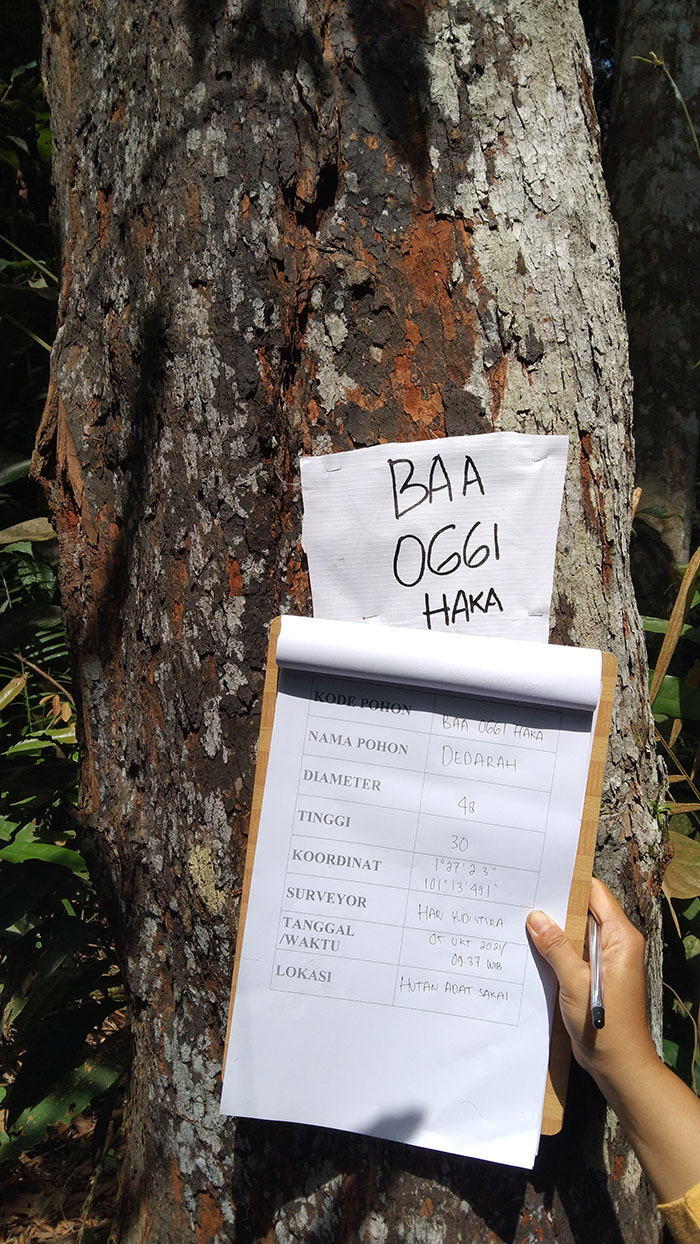 BAA
OGGI
HAKA
KODE POHON BAA OGGI HAKA
NAMA POHON DEDARAH
DIAMETER 48
TINGGI 30
KOORDINAT 1°27'23"
101°13'491"
SURVEYOR HARI YUDISTIRA
TANGGAL /WAKTU 05 OKT 2021/
09.37 WIB
LOKASI HUTAN ADAT SAKAI